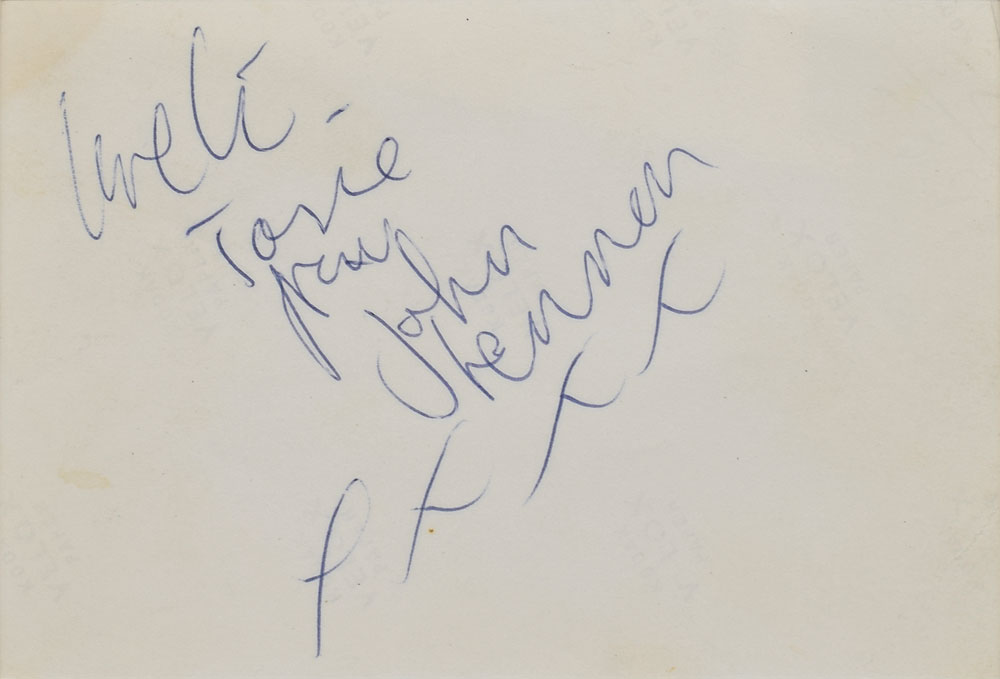 love to
Josie
from
John
Lennon
xxxx